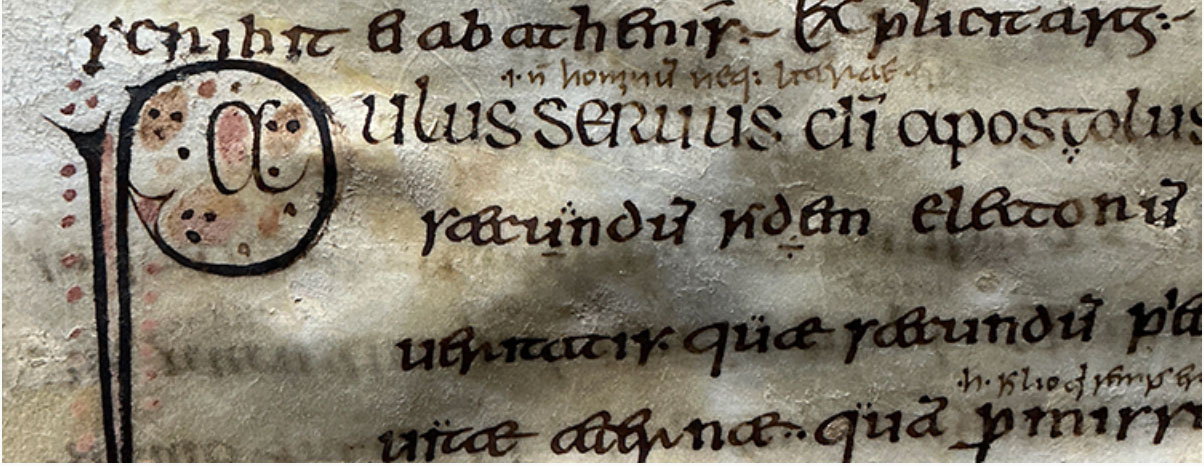 scribit ei ab athenis:~ Explicit arg:-
.i. n̄ hominū neq:
Paulus seruus dī apostolus
secundū fidem electorū
ueritatis quae secundū
uitae aeternae quā